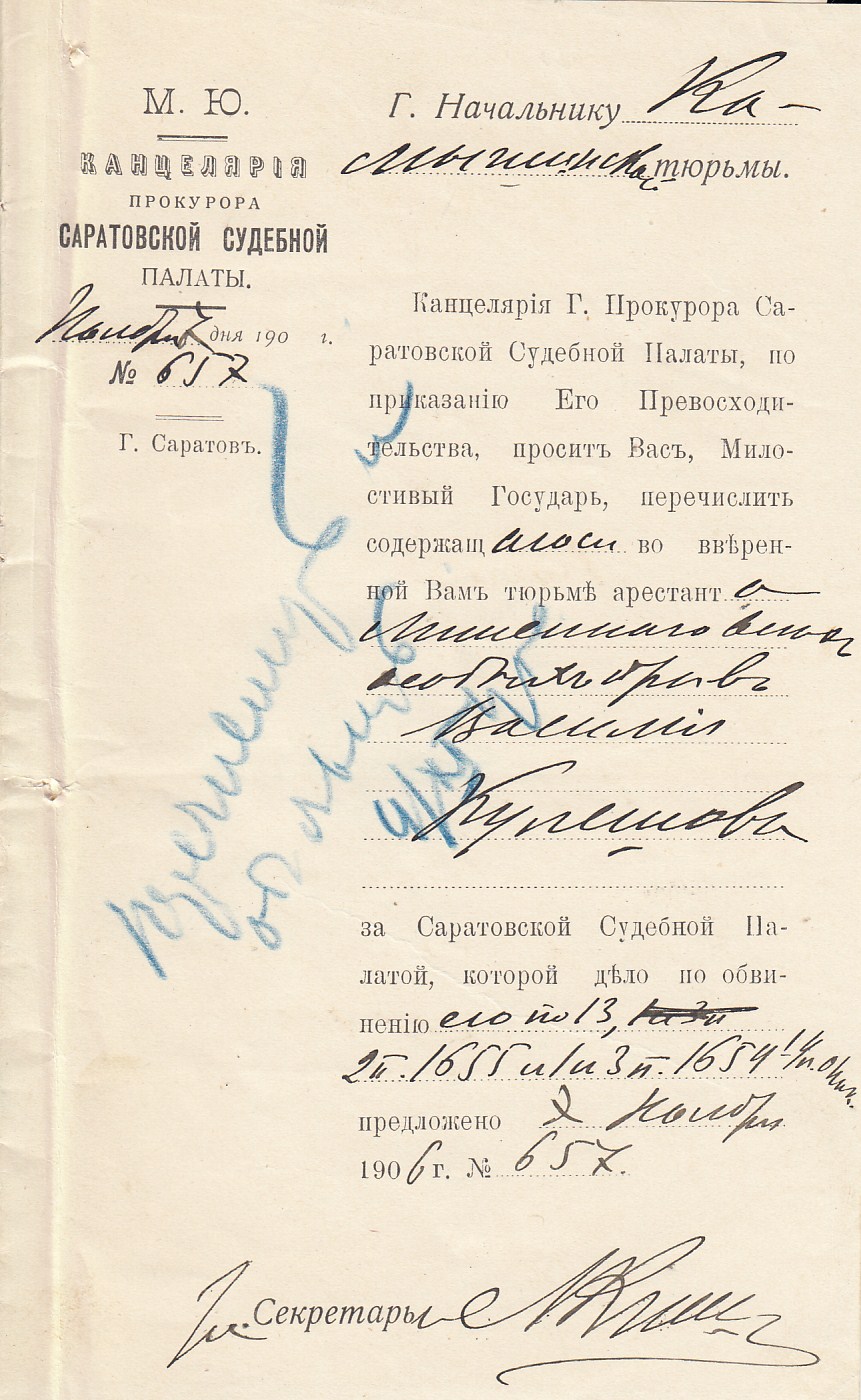 М. Ю.
КАНЦЕЛЯРІЯ
ПРОКУРОРА
САРАТОВСКОЙ СУДЕБНОЙ
ПАЛАТЫ.
Ноября 7 дня 190 г.
№ 657
Г. Саратовъ.
Г. Начальнику Ка-
мышинской тюрьмы.
Канцелярія Г. Прокурора Са-
ратовской Судебной Палаты, по
приказанію Его Превосходи-
тельства, проситъ Васъ, Мило-
стивый Государь, перечислить
содержащагося во ввѣрен-
ной Вамъ тюрьмѣ арестанта
лишеннаго всѣхъ
особыхъ правъ
Василія
Кулешова
за Саратовской Судебной Па-
латой, которой дѣло по обви-
ненію его по 13,
2 п. 1655 и 1 и 3 п. 1654¹
предложено 7 Ноября
1906 г. № 657.
Секретарь